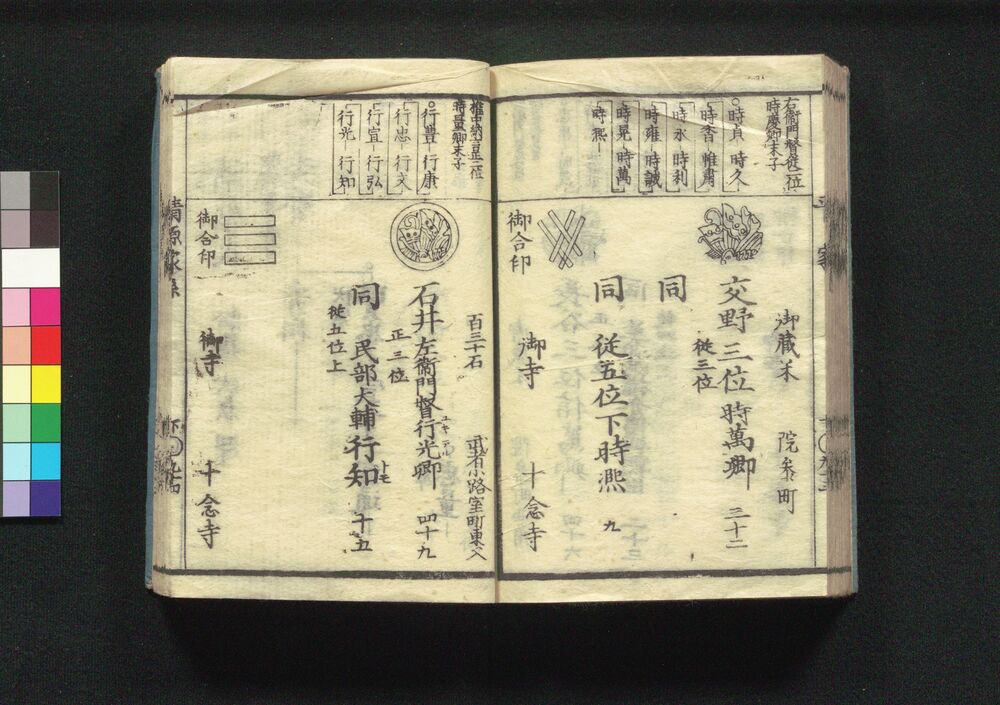 右衛門督従二位
時慶卿末子
○時貞 時久
時香 惟粛
時永 時利
時雍 時誠
時晃 時萬
時𤋮
御蔵米 院参町
交野三位時萬卿 三十二
従三位
同
同 従五位下時𤋮 九
御合印 御寺 十念寺
権中納言正二位
時量卿末子
○行豊 行康
行忠 行文
行宜 行弘
行光 行知
百三十石 武者小路室町東入
石井左衛門督行光卿 四十九
正三位
同 民部大輔行知 十五
トモ
従五位上
御合印 御寺 十念寺